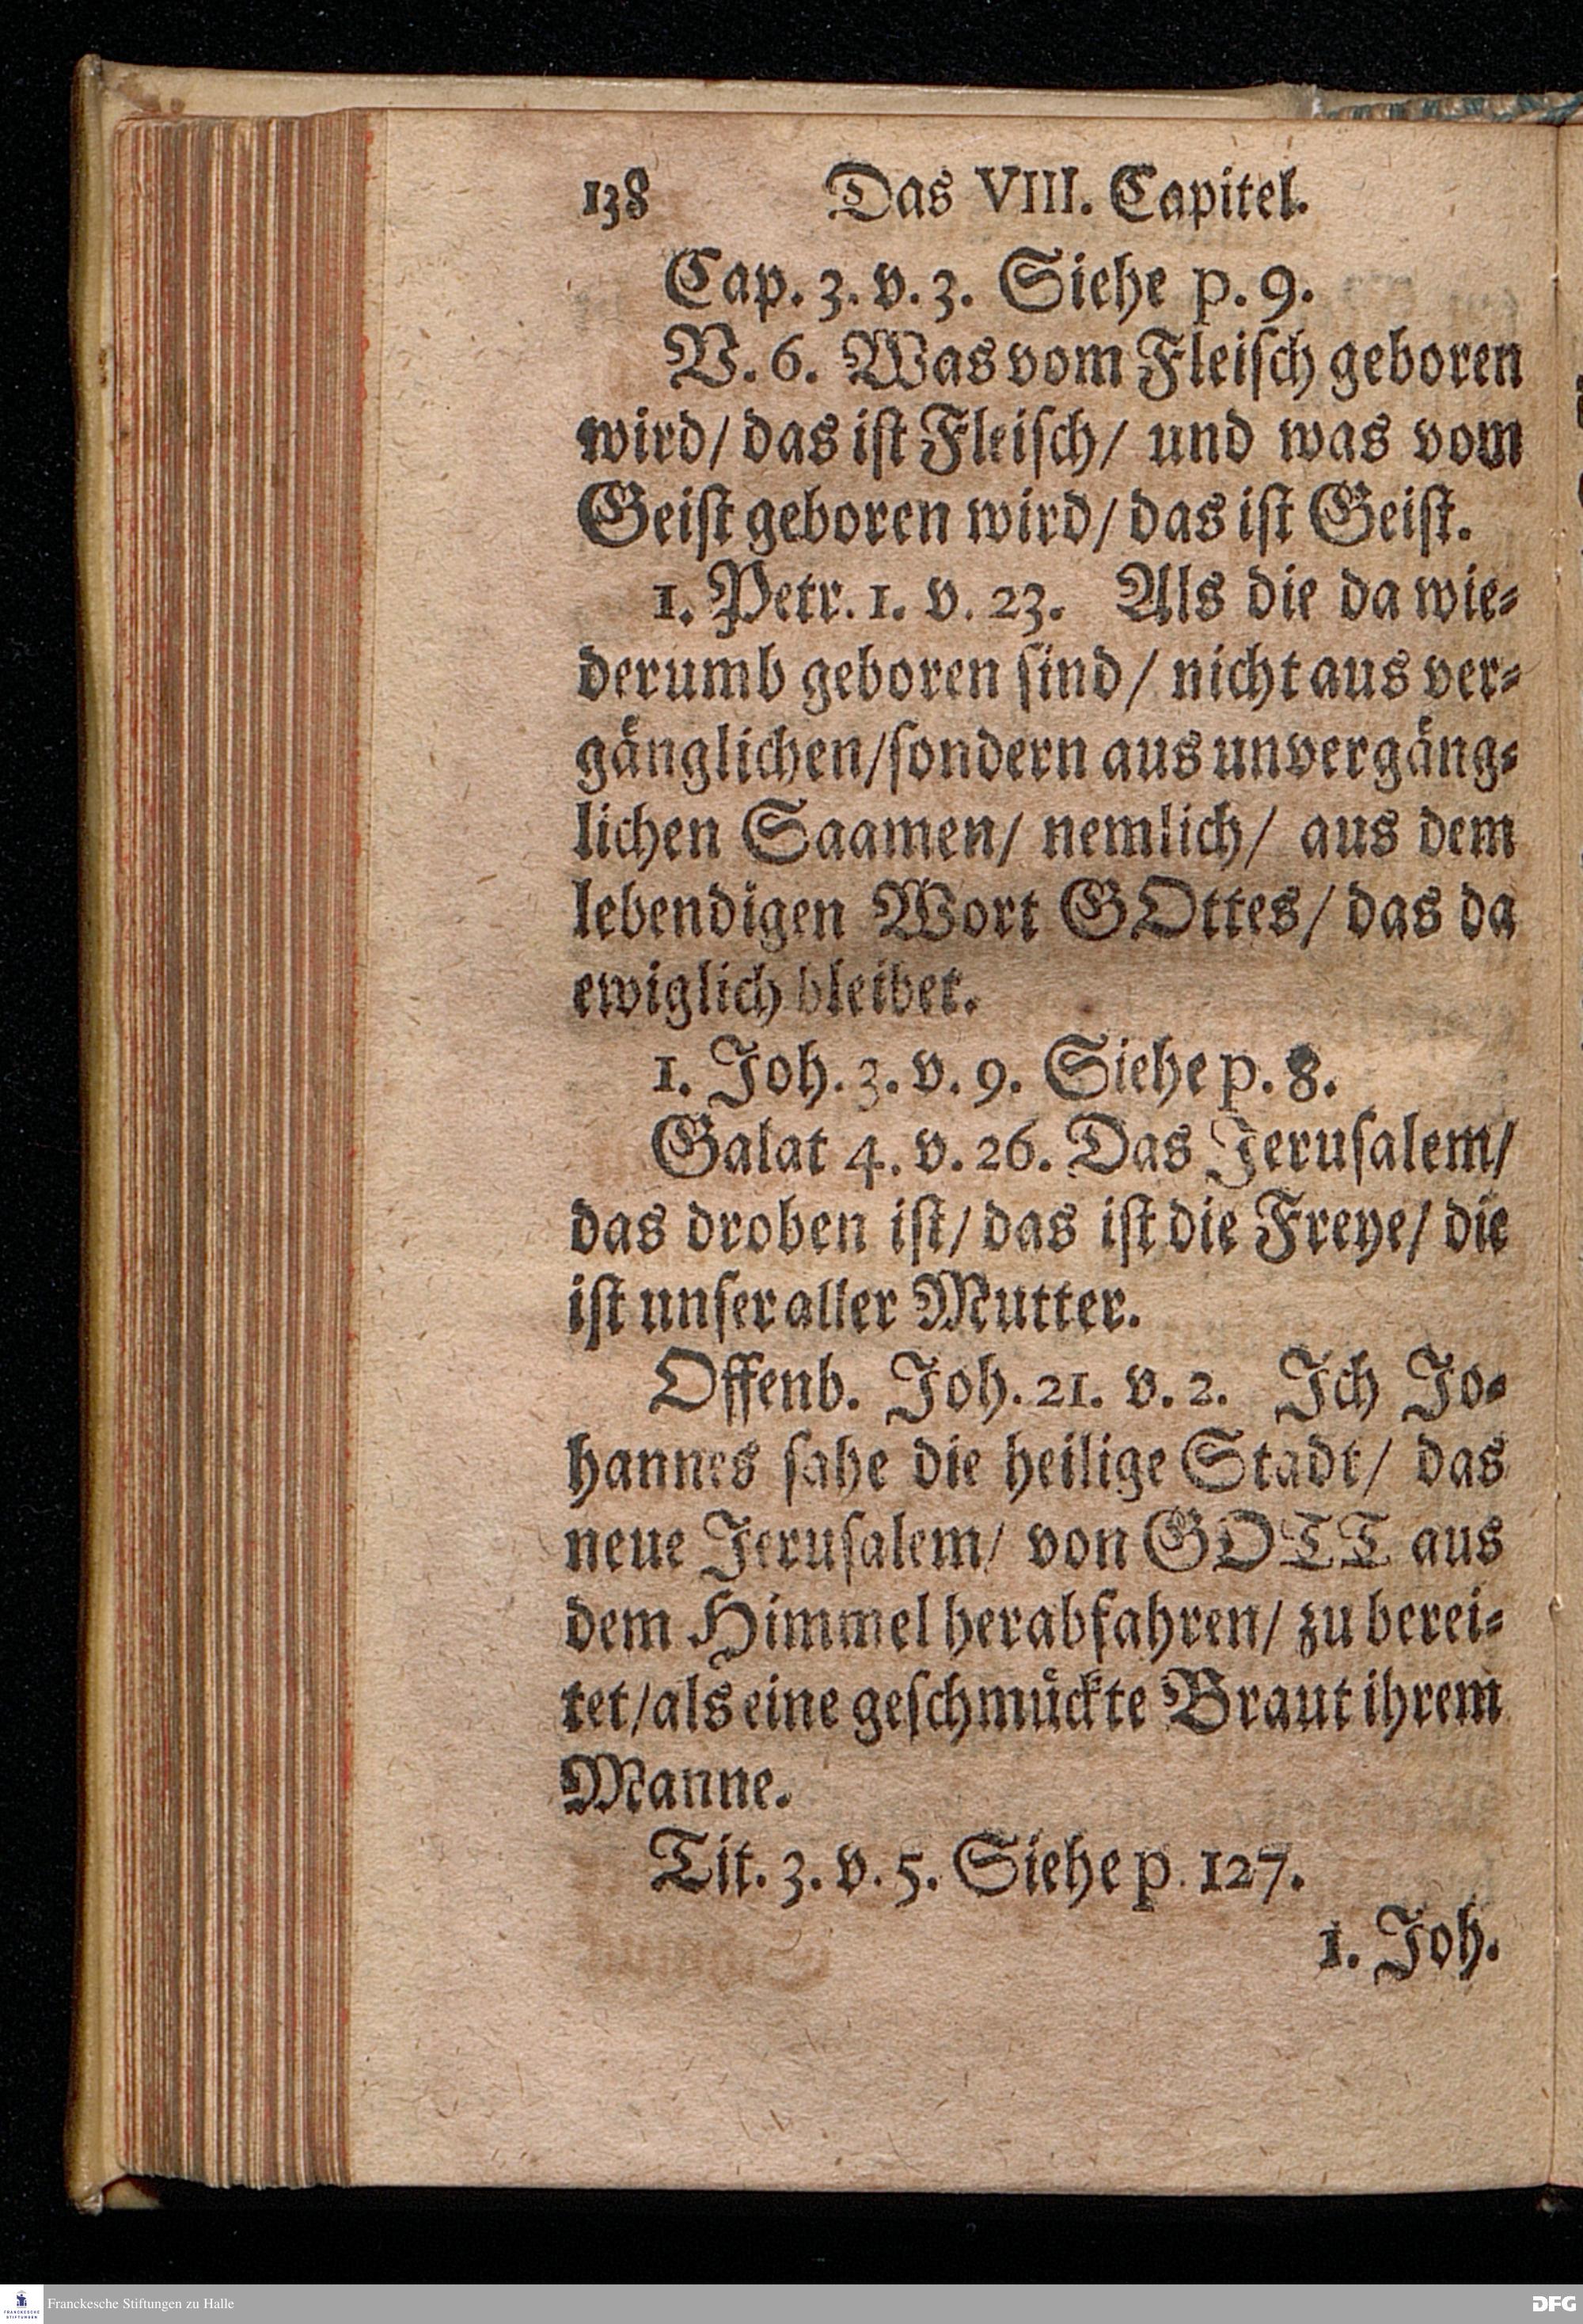 138 Das VIII. Capitel.
Cap. 3. v. 3. Siehe p. 9.
V. 6. Was vom Fleiſch geboren
wird/ das iſt Fleiſch/ und was vom
Geiſt geboren wird/ das iſt Geiſt.
1. Petr. 1. v. 23. Als die da wie⸗
derumb geboren ſind/ nicht aus ver⸗
gaͤnglichen/ſondern aus unvergaͤng⸗
lichen Saamen/ nemlich/ aus dem
lebendigen Wort GOttes/ das da
ewiglich bleibet.
1. Joh. 3. v. 9. Siehe p. 8.
Galat 4. v. 26. Das Jeruſalem/
das droben iſt/ das iſt die Freye/ die
iſt unſer aller Mutter.
Offenb. Joh. 21. v. 2. Jch Jo⸗
hannes ſahe die heilige Stadt/ das
neue Jeruſalem/ von GOTT aus
dem Himmel herabfahren/ zu berei⸗
tet/als eine geſchmuͤckte Braut ihrem
Manne.
Tit. 3. v. 5. Siehe p. 127.
1. Joh.
FRANCKESCHE STIFTUNGEN
Franckesche Stiftungen zu Halle
DFG